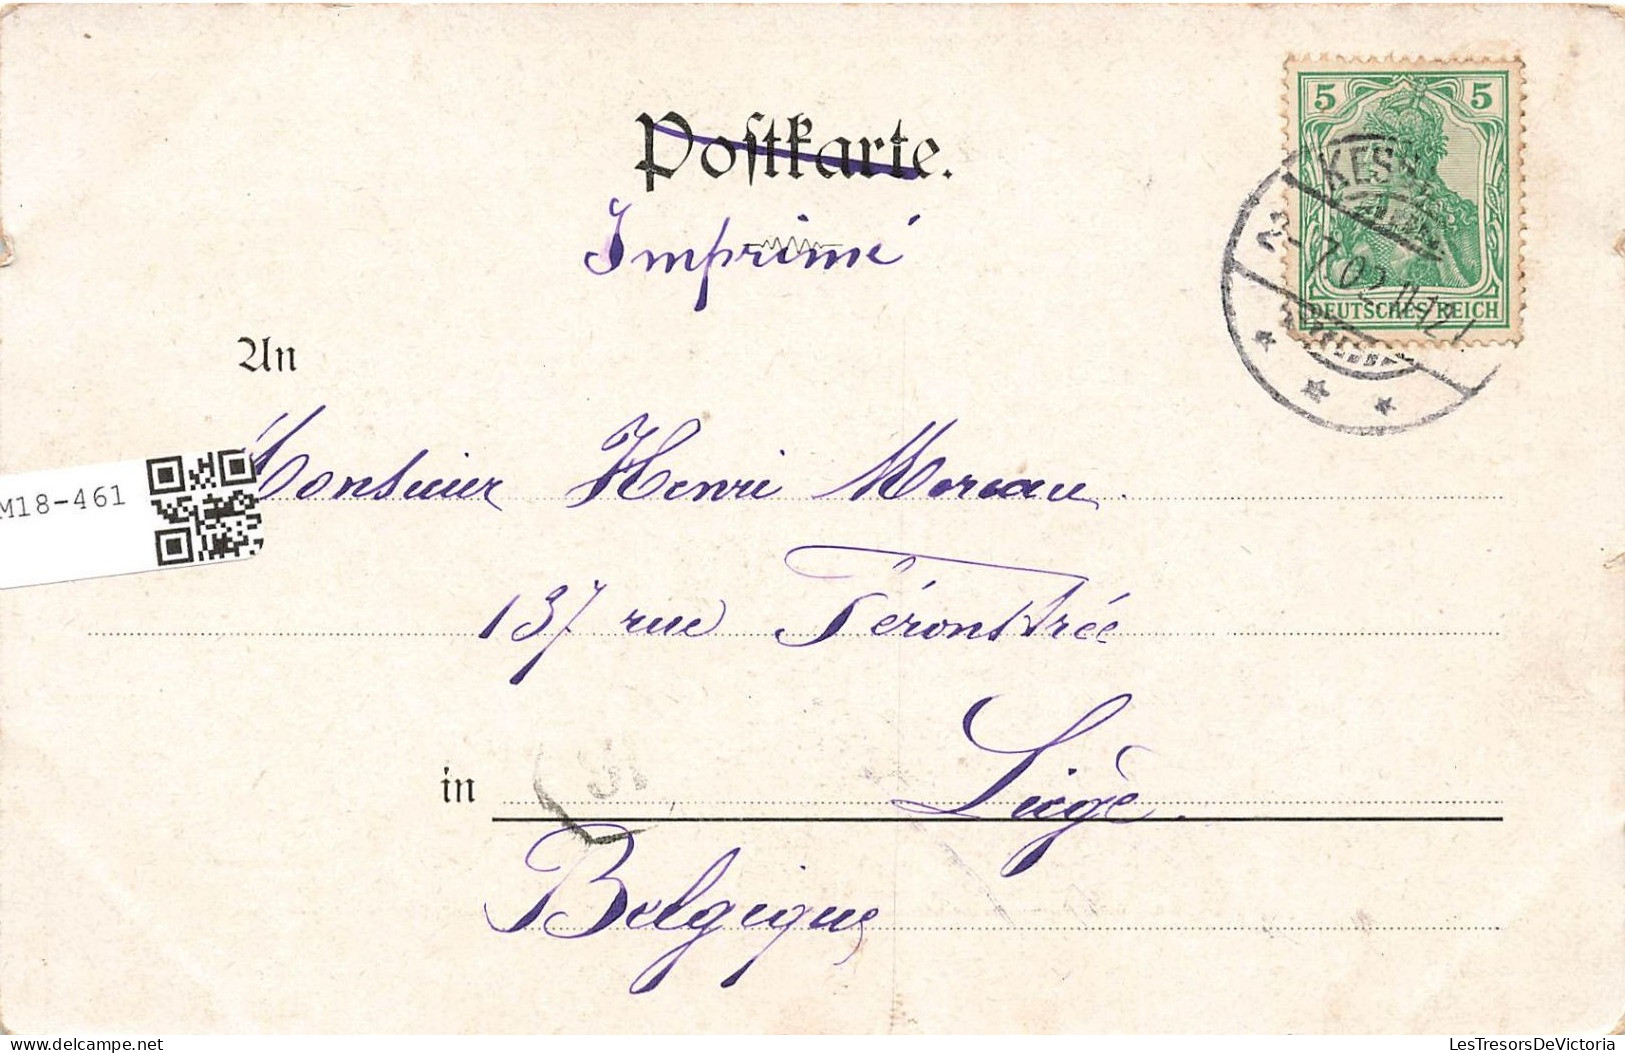 Postkarte.
Imprimé
5 5
DEUTSCHES REICH
7.02.11-12
An
Monsieur Henri Moreau.
M18-461
137 rue Féronstrée
in Liège.
Belgique
delcampe.net
LesTresorsDeVictoria